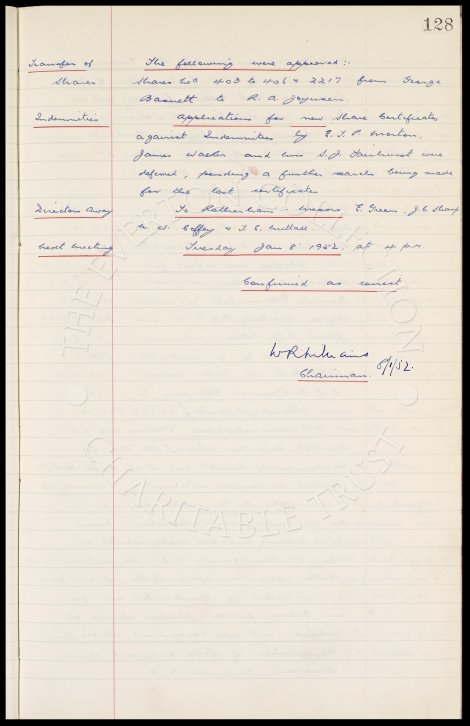 128
Transfer of The following were approved:-
Shares Shares Nos 403 to 406 & 2217 from George
Basnett to R. A. Joynson.
Indemnities Applications for new Share Certificates
against Indemnities by E. T. P. Morton,
James Walker and Mrs S. J. Fairhurst were
deferred, pending a further search being made
for the lost certificate
Directors Away To Rotherham: Messrs E. Green, J. C. Sharp
W. Gaffey & T. C. Nuttall.
Next Meeting Tuesday Jan 8 1952 at 4 p.m.
Confirmed as correct
8/1/52.
Chairman.
THE EVERTON COLLECTION
CHARITABLE TRUST